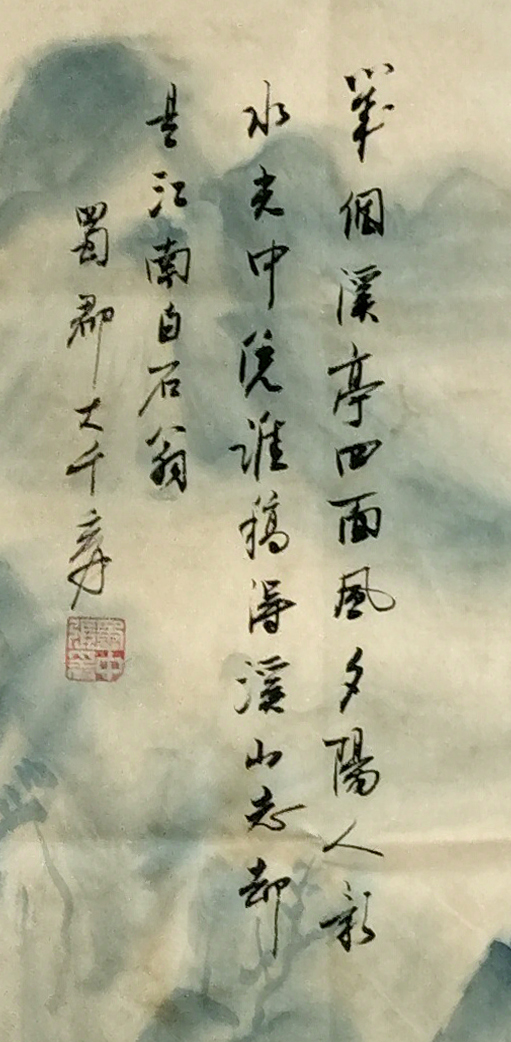 幾個溪亭四面風夕陽人影
水光中誰稿得溪山志却
是江南白石翁
蜀郡大千爰